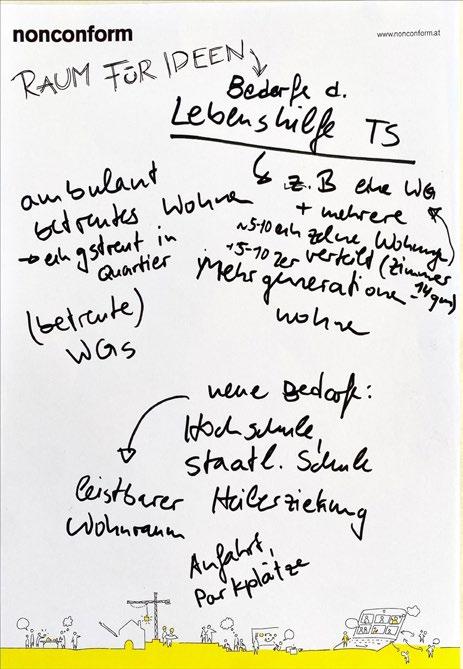 nonconform
www.nonconform.at
RAUM FÜR IDEEN
Bedarfe d.
Lebenshilfe TS
z.B eine WG
+ mehrere
~5-10 einzelne Wohnungen
+5-10 2er verteilt (Zimmer
~14qm)
Mehrgenerationen
wohnen
ambulant
betreutes Wohnen
→ eingstreut in
Quartier
(betreute)
WGs
neue Bedarfe:
Hochschule,
staatl. Schule
Heilerziehung
leistbarer
Wohnraum
Anfahrt,
Parkplätze